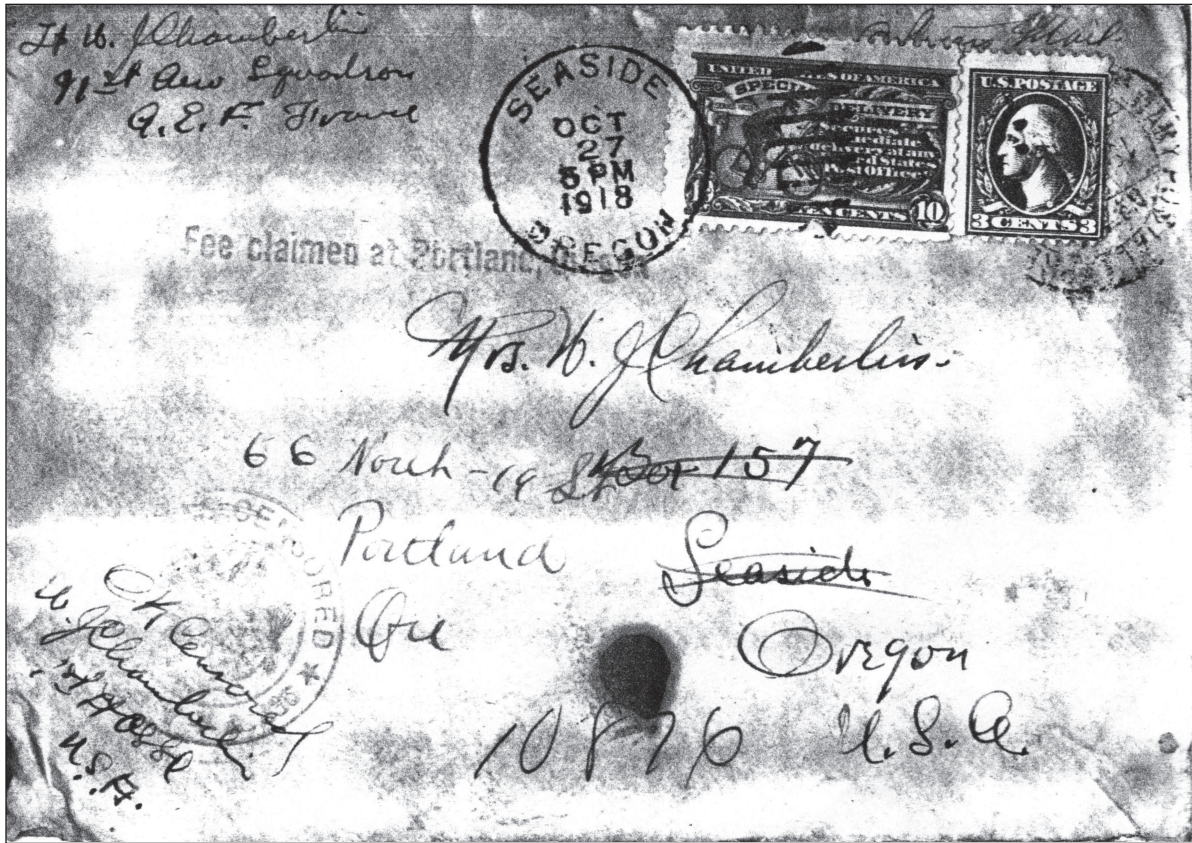 Lt W. J Chamberlin
91st Aero Squadron
A. E. F. France
SEASIDE
OCT
27
5 PM
1918
OREGON
UNITED STATES OF AMERICA
SPECIAL DELIVERY
TEN CENTS 10
U.S. POSTAGE
3 CENTS 3
Fee claimed at Portland,
Mrs. W. J Chamberlin.
66 North - 19 St Box 157
Portland Seaside
Ore Oregon
10876 U. S. A.
CENSORED
OK Censored
W. J Chamberlin
U.S.A.